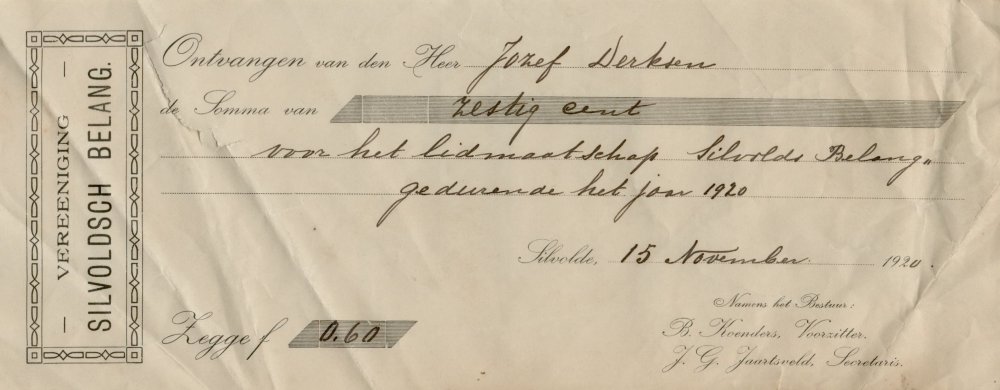 VEREENIGING
SILVOLDSCH BELANG.
Ontvangen van den Heer Jozef Derksen
de Somma van zestig cent
voor het lidmaatschap Silvolds Belang„
gedurende het jaar 1920
Silvolde, 15 November 1920.
Namens het Bestuur:
B. Koenders, Voorzitter.
J. G. Jaartsveld, Secretaris.
Zegge f 0.60